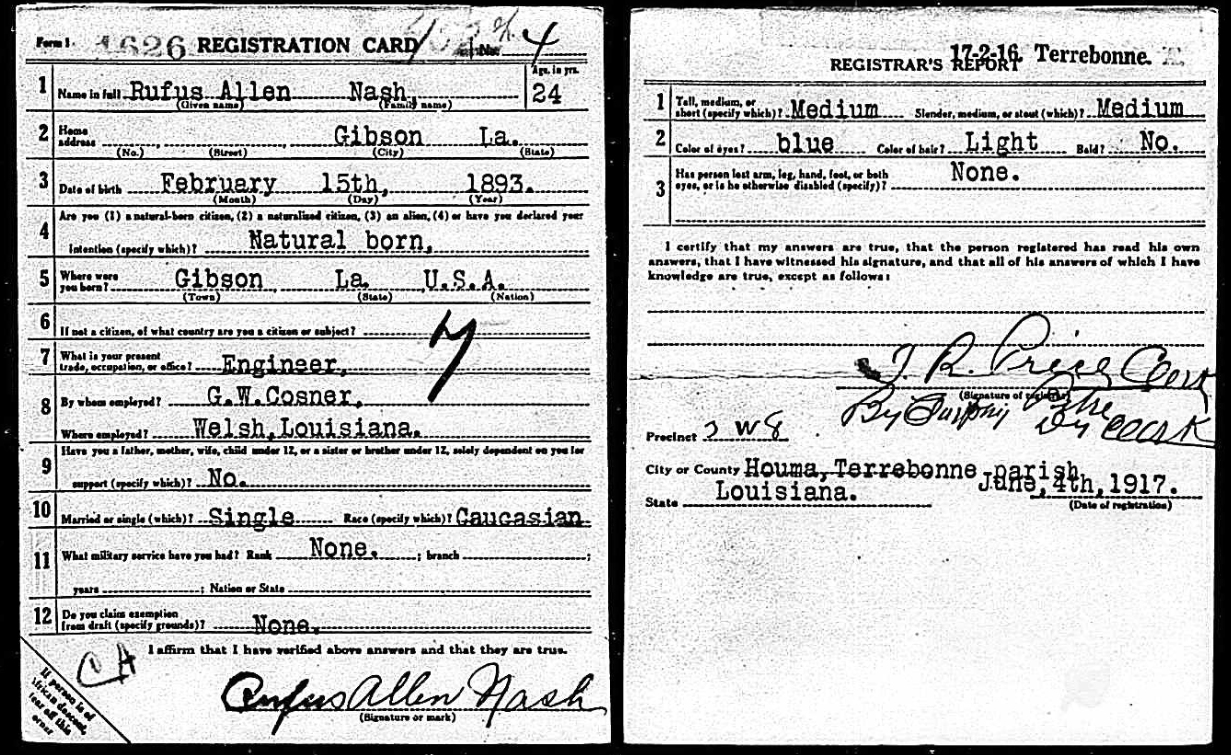 Form 1 1626 REGISTRATION CARD No. 4
1 Name in full Rufus Allen Nash, Age, in yrs. 24
(Given name) (Family name)
2 Home address Gibson La.
(No.) (Street) (City) (State)
3 Date of birth February 15th, 1893.
(Month) (Day) (Year)
4 Are you (1) a natural-born citizen, (2) a naturalized citizen, (3) an alien, (4) or have you declared your
intention (specify which)? Natural born,
5 Where were you born? Gibson La. U.S.A.
(Town) (State) (Nation)
6 If not a citizen, of what country are you a citizen or subject?
7 What is your present trade, occupation, or office? Engineer,
8 By whom employed? G.W.Cosner,
Where employed? Welsh,Louisiana.
9 Have you a father, mother, wife, child under 12, or a sister or brother under 12, solely dependent on you for
support (specify which)? No.
10 Married or single (which)? Single Race (specify which)? Caucasian
11 What military service have you had? Rank None. ; branch ;
years ; Nation or State
12 Do you claim exemption from draft (specify grounds)? None.
I affirm that I have verified above answers and that they are true.
CA
Rufus Allen Nash
(Signature or mark)
If person is of
African descent,
tear off this
corner
17-2-16. Terrebonne.
REGISTRAR'S REPORT
1 Tall, medium, or short (specify which)? Medium Slender, medium, or stout (which)? Medium
2 Color of eyes? blue Color of hair? Light Bald? No.
3 Has person lost arm, leg, hand, foot, or both eyes, or is he otherwise disabled (specify)? None.
I certify that my answers are true, that the person registered has read his own
answers, that I have witnessed his signature, and that all of his answers of which I have
knowledge are true, except as follows:
Price Clerk
(Signature of registrar)
By Dy Clerk
Precinct 3 W 8
City or County Houma, Terrebonne parish
State Louisiana. June, 4th, 1917.
(Date of registration)